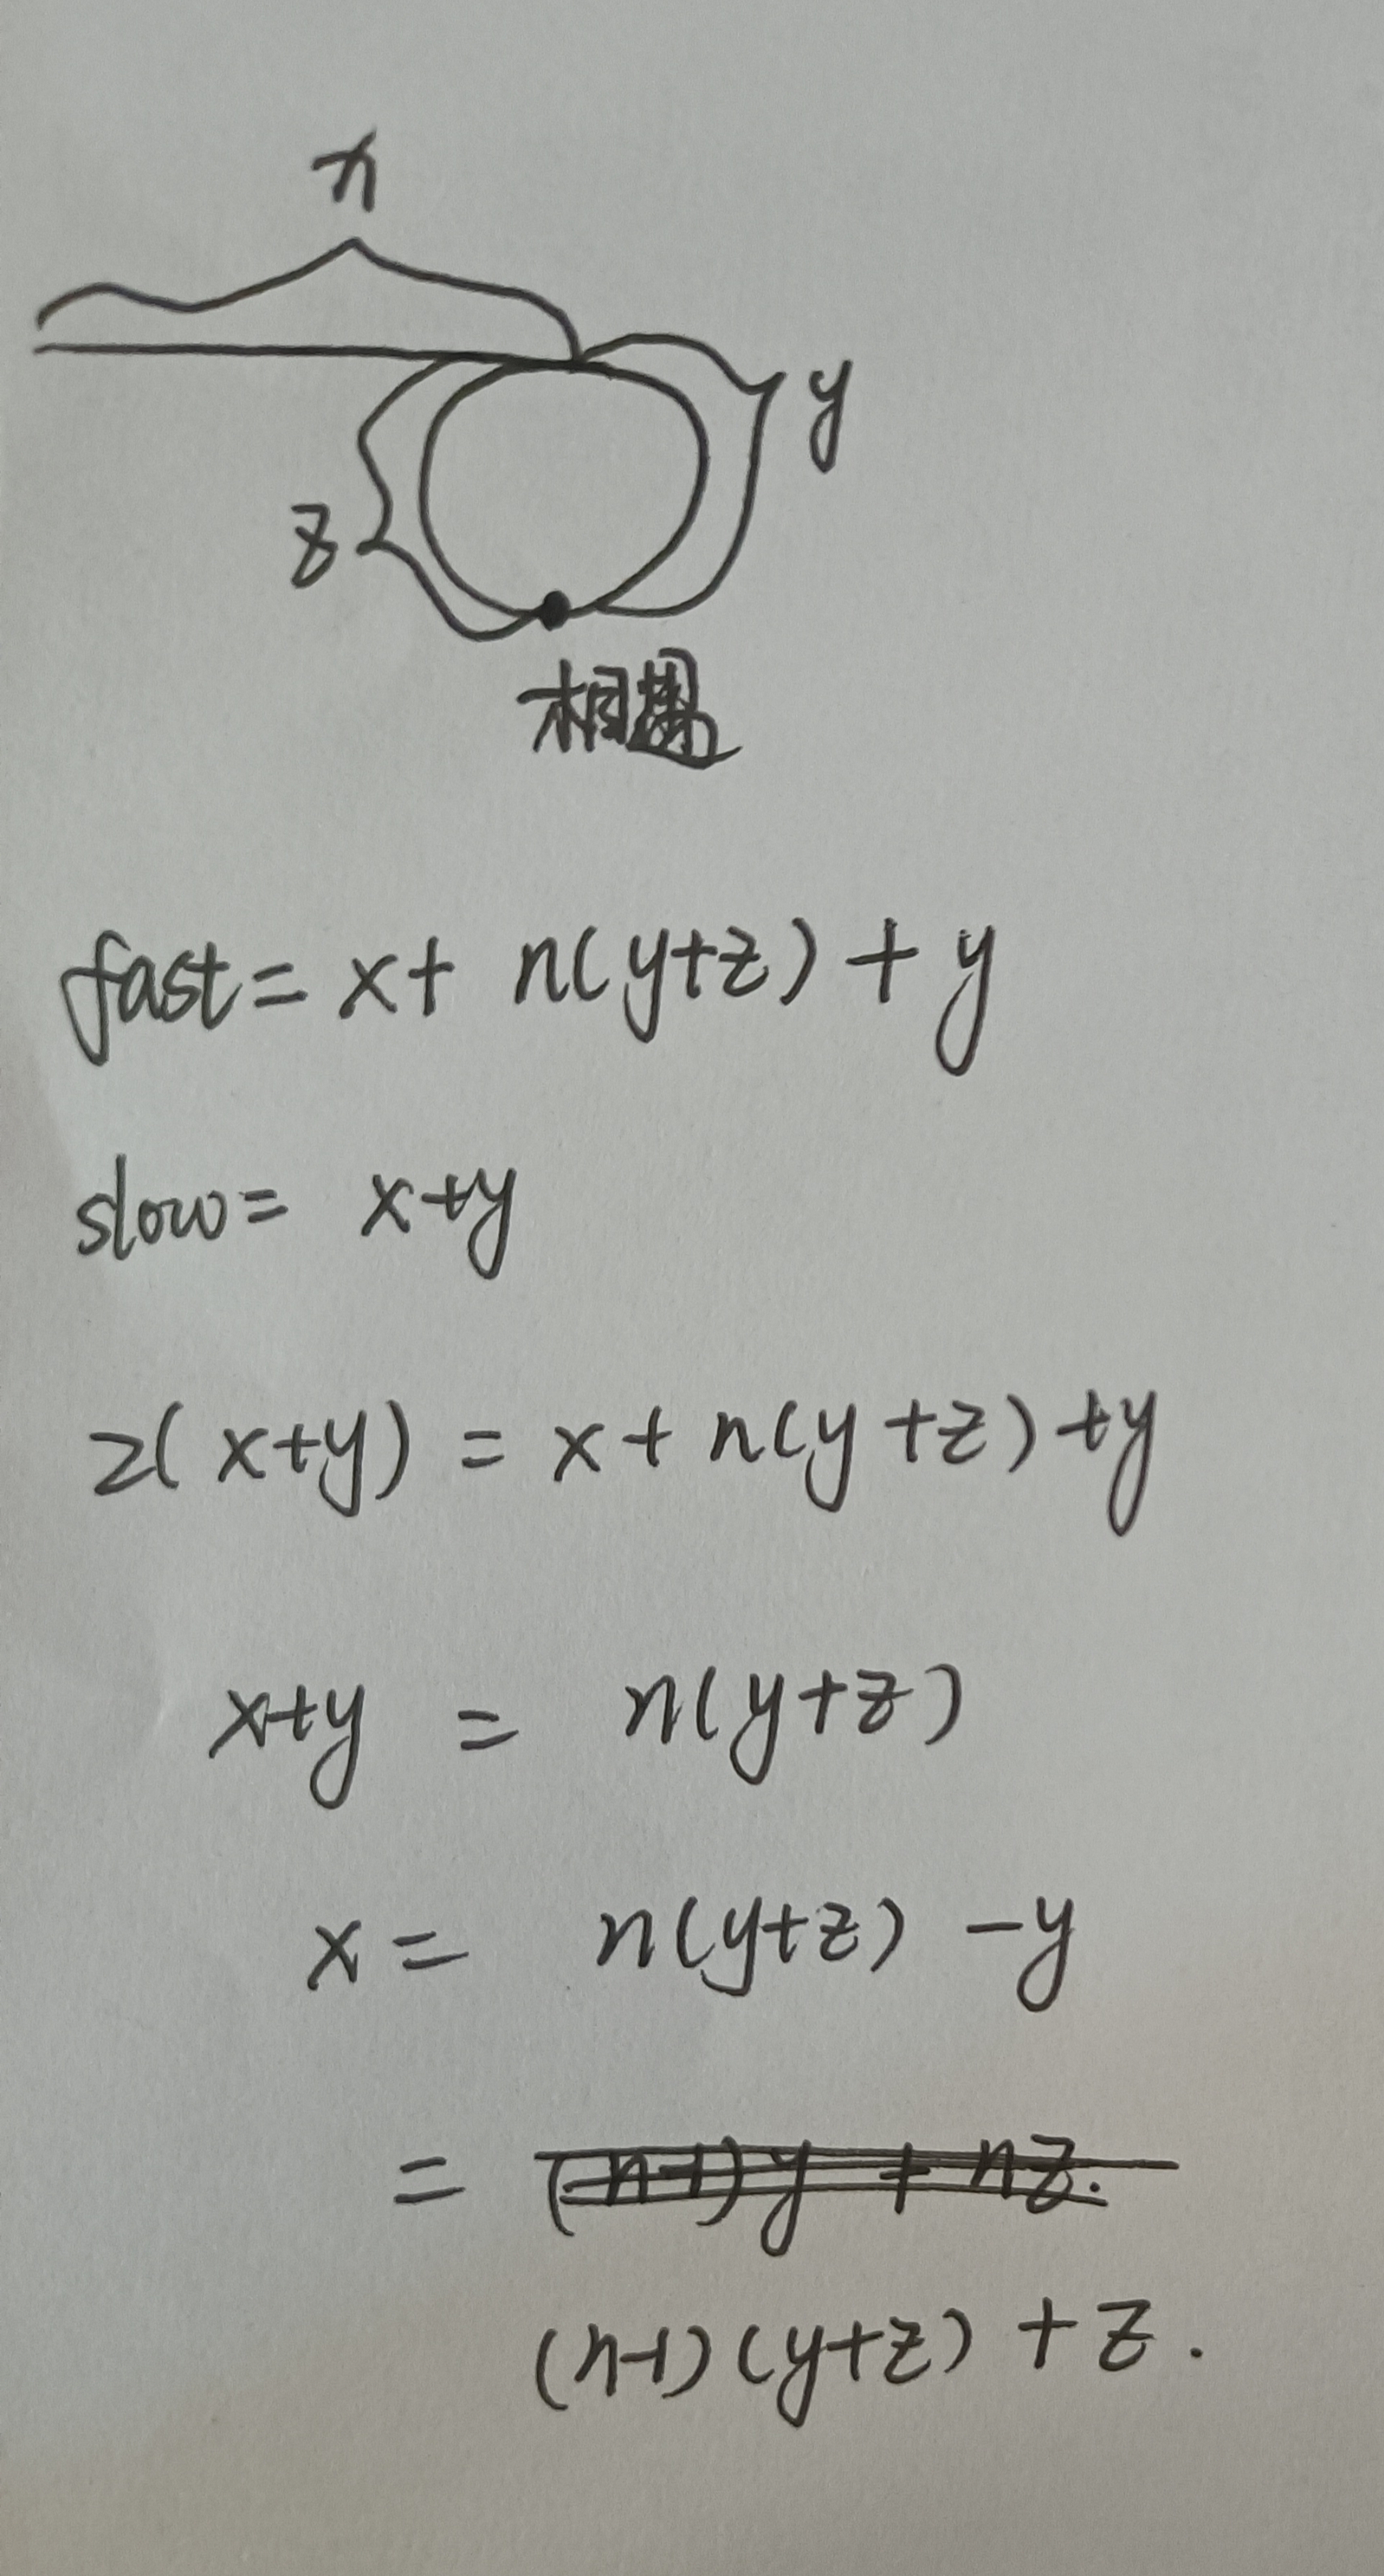 x
y
z
相遇
fast = x + n(y+z) + y
slow = x+y
2(x+y) = x + n(y+z) + y
x+y = n(y+z)
x = n(y+z) - y
= (n-1)y + nz.
(n-1)(y+z) + z.